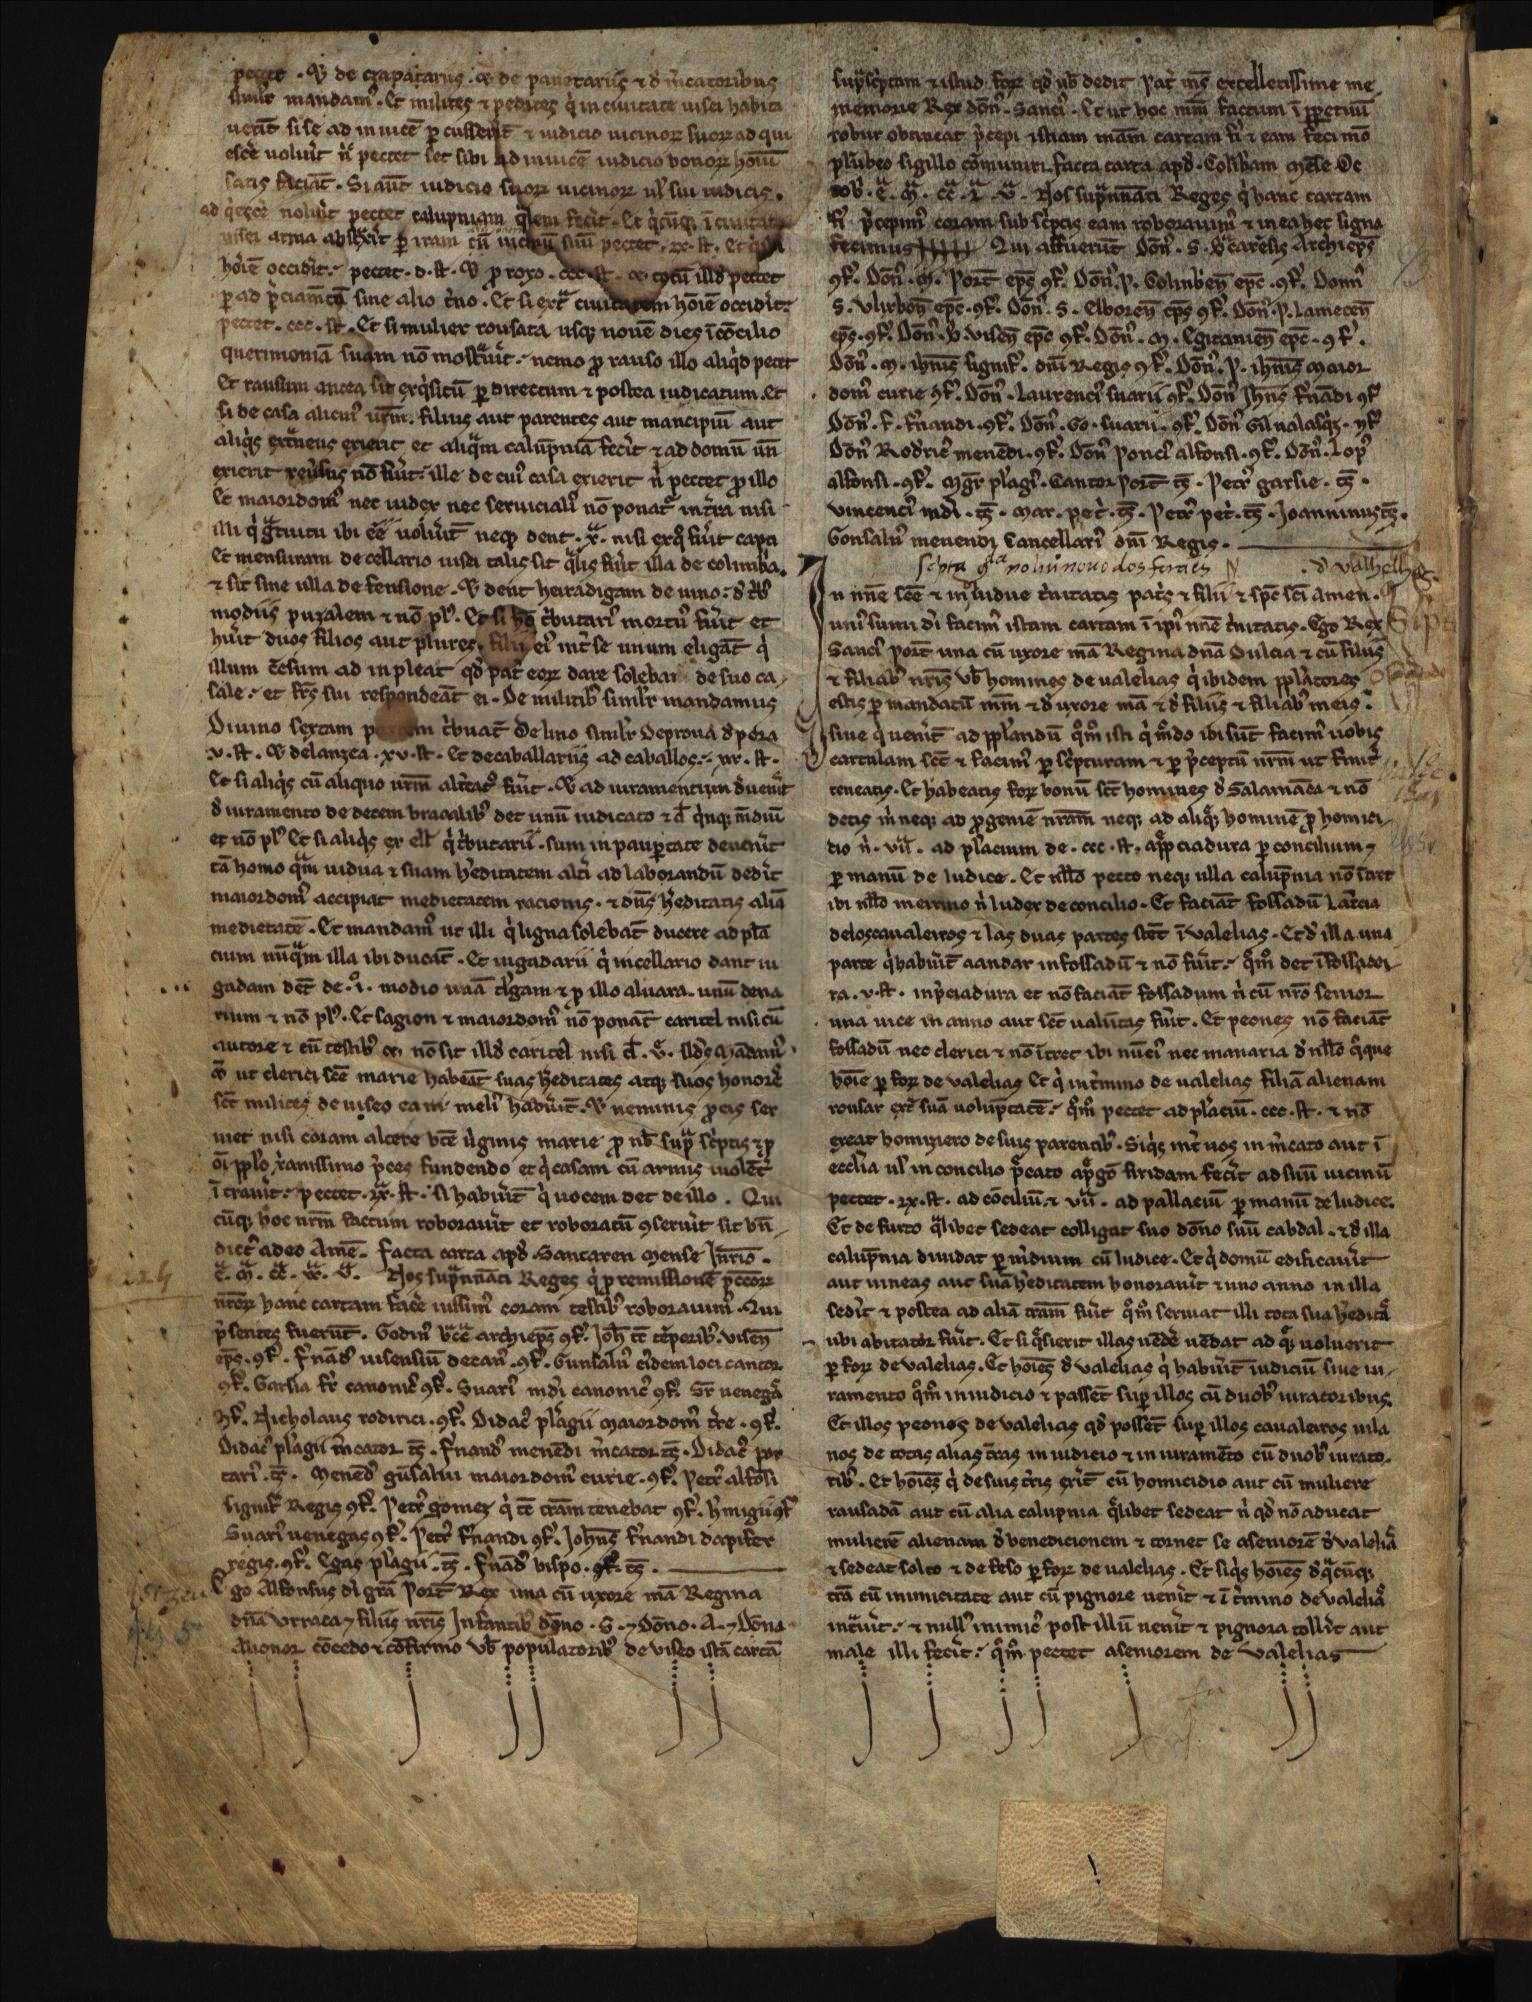 pectet . Et de çapatariis . et de panetariis et de mercatoribus
similiter mandamus . Et milites et pedites qui in ciuitate uisei habita
uerint si se ad inuicem percusserint et iudicio uicinorum suorum ad qui
escere uoluerit non pectet set sibi ad inuicem iudicio bonorum hominum
satis faciant . Si autem iudicio suorum uicinorum uel sui iudicis .
ad quiescere noluerit pectet calupniam quam fecerit . Et quicumque in ciuitate
uisei arma abstraxerit per iram cum uicinum suum pectet . xx . st . Et qui
hominem occiderit pectet . d . st . Et pro roxo . ccc . st . et totum illud pectet
per ad preciamentum sine alio termino . Et si extra ciuitatem hominem occiderit
pectet . ccc . st . Et si mulier rousata usque nouem dies in concilio
querimoniam suam non mostrauerit nemo pro rauso illo aliquid pectet
Et rausum antea sit exquisitum per directum et postea iudicatum . Et
si de casa alicuius uestrum . filius aut parentes aut mancipium aut
aliquis extraneus exierit et aliquam calupniam fecerit et ad domum unde
exierit reuersus non fuerit ille de cuius casa exierit non pectet pro illo
Et maiordomus nec iudex nec seruicialis non ponatur in terra nisi
illi qui gratuitu ibi esse uoluerit neque dent . xa . nisi ex quo fuerit capta
Et mensuram de cellario uisei talis sit qualis fuerit illa de colimbria .
et sit sine ulla defensione . Et dent heiradigam de uino de tribus
modiis puzalem et non plus . Et si homo tributarius mortuus fuerit et
huerit duos filios aut plures . filii eius inter se unum eligant qui
illum censum ad inpleat quod pater eorum dare solebat de suo ca
sale et fratres sui respondeant ei . De militibus similiter mandamus
Diuino sextam partem tribuant De lino similiter De proua de pera
v . st . Et de lanzea . xv . st . Et de caballariis ad caballos . xx . st .
Et si aliquis cum aliquo uestrum altercatus fuerit . Et ad iuramentum deuenerit
de iuramento de decem bracalibus det unum iudicato et de quinque medium
et non plus Et si aliquis ex ellis qui tributarii . sum in paupertate deuenerit
tam homo quam uidua et suam hereditatem alteri ad laborandum dederit
maiordomus accipiat medietatem racionis . et dominus hereditatis aliam
medietatem . Et mandamus ut illi qui ligna solebant ducere ad pala
cium numquam illa ibi ducant . Et iugadarii qui in cellario dant iu
gadam dent de . i . modio unam teligam et pro illo aluara . unum dena
rium et non plus . Et sagion et maiordomus non ponant caritel nisi cum
autore et cum testibus et non sit illud caritel nisi de . v . solidos Mandamus
et ut clerici sancte marie habeant suas hereditates atque suos honores
sicut milites de uiseo eam melius habuerint . Et nemini s pro eis ser
uiet nisi coram altare beate uirginis marie pro nobis supra scriptis et pro
omni populo christianissimo preces fundendo et qui casam cum armis uiolenter
intrauerit pectet . xxa . st . si habuerit qui uocem det de illo . Qui
cumque hoc nostrum factum roborauerit et roboratum conseruerit sit bene
dictus a deo Amen . Facta carta apud Santaren Mense Januario .
e . m . cc . xx . v . Nos supranominati Reges qui pro remissione peccatorum
nostrorum hanc cartam facere iussimus coram testibus roborauimus . Qui
presentes fuerunt . Godinus bracarensis archiepiscopus conf . Johannes tunc temporibus . uisensis
episcopus . conf . Fernandus uisensium decanus . conf . Gunsaluus eiusdem loci cantor
conf . Garsia frater canonicus conf . Suarius menendi canonicus conf . Suarius uenegas
conf . Nicholaus rodirici . conf . Didacus pelagii Maiordomus terre . conf .
Didacus pelagii mercator ts . Fernandus menendi mercator ts . Didacus por
tarius . ts . Menendus gunsalui maiordomus curie . conf . Petrus alfonsi
signifer Regis conf . Petrus gomez qui tunc terram tenebat conf . hermigius conf
Suarius uenegas conf . Petrus fernandi conf . Johannes fernandi dapifer
regis . conf . Egas pelagii . ts . Fernandus uispo . conf . ts .
Ego Alfonsus dei gratia Portugalie Rex una cum uxore mea Regina
domna Urraca et filiis nostris Infantibus domno . S . et domno . A . et domna
Alionor concedo et confirmo uobis populatoribus de viseo istam cartam
suprascriptam et istud forum quod uobis dedit pater meus excellentissime me
memorie Rex domnus . Sancius . Et ut hoc meum factum in perpetuum
robur obtineat precepi istam meam cartam fieri et eam feci meo
plumbeo sigillo communiri . Facta carta apud . Colimbriam Mense Oc
tobris . e . m . cc . l . v . Nos supranominati Reges qui hanc cartam
fieri precepimus coram subscriptis eam roborauimus et in ea hec signa
fecimus Qui affuerunt Domnus . S . bracarensis Archiepiscopus
conf . Domnus . M . Portugalensis episcopus conf . Domnus . P . Colimbriensis episcopus . conf . Domnus
S . Vlixbonensis episcopus . conf . Domnus . S . Elborensis episcopus conf . Domnus . P . Lamecensis
episcopus . conf . Domnus . B . Visensis episcopus conf . Domnus . M . Egitaniensis episcopus . conf .
Domnus . M . iohannis signifer . domini Regis conf . Domnus . P . iohannis Maior
domus curie conf . Domnus . Laurencius suarii conf . Domnus Johannes fernandi conf
Domnus . F . fernandi . conf . Domnus . Go . suarii . conf . Domnus Gil ualasquis . conf
Domnus Rodericus menendi . conf . Domnus Poncius alfonsi . conf . Domnus . Lopus
alfonsi . conf . Magister pelagius . Cantor Portugalensis ts . Petrus garsie . ts .
Vincencius mendi . ts . Mar . petri . ts . Petrus petri . ts . Joanninus ts .
Gonsaluus menendi Cancellarius domini Regis .
scripta est no liuro nouo dos foraes . de valhelhas
In nomine sancte et indiuidue trinitatis patris et filii et spiritus sancti Amen .
unus sumus deus facimus istam cartam in ipsius nomine trinitatis . Ego Rex
Sancius Portugalensis una cum uxore mea Regina domna Dulcia et cum filiis
et filiabus nostris uobis homines de valelias qui ibidem populatores
estis per mandatum meum et de uxore mea et de filiis et filiabus meis
siue qui uenerit ad populandum quomodo isti qui modo ibi sunt facimus uobis
cartulam sicut et facimus per scripturam et per preceptum nostrum ut firmiter
teneatis . Et habeatis forum bonum sicut homines de Salamanca et non
detis inde neque ad progeniem nostram neque ad aliquem hominem pro homici
dio nisi . viia . ad palacium de . ccc . st . apreciadura per concilium et
per manum de Iudice . Et nullo pecto neque ulla calupnia non stet
ibi nullo meirino nisi Iudex de concilio . Et faciant fossadum La tercia
de los caualeiros et las duas partes stent in valelias . Et de illa una
parte qui habuerint a andar in fossadum et non fuerit quomodo det in fossadei
ra . v . st . in preciadura et non faciant fossadum nisi cum nostro senior
una uice in anno aut sicut uoluntas fuerit . Et peones non faciant
fossadum nec clerici et non intret ibi nuncius nec manaria de nullo quique
homine per forum de valelias Et qui in termino de ualelias filiam alienam
rousar extra suam uoluptatem quomodo pectet ad palacium . ccc . st . et non
exeat homiziero de suis parentibus . Si quis inter uos in mercato aut in
ecclesia uel in concilio precato apregon feridam fecerit ad suum uicinum
pectet . xx . st . ad concilium et viia . ad pallacium per manum de Iudice .
Et de furto quilibet sedeat colligat suo domno suum cabdal . et de illa
calupnia diuidat per medium cum Iudice . Et qui domum edificauerit
aut uineas aut suam hereditatem honorauerit et uno anno in illa
sederit et postea ad aliam terram fuerit quomodo seruiat illi tota sua hereditas
ubi abitator fuerit . Et si quesierit illas uendere uendat ad quem uoluerit
per forum de valelias . Et homines de valelias qui habuerint iudicium siue iu
ramento quomodo in iudicio et passent super illos cum duobus iuratoribus .
Et illos peones de valelias quod possent super illos caualeiros uila
nos de totas alias terras in iudicio et in iuramento cum duobus iurato
ribus . Et homines qui de suis terris exierit cum homicidio aut cum muliere
rausada aut cum alia calupnia quilibet sedeat nisi quod non aducat
mulierem alienam de benedicionem et tornet se a seniorem de valelias
et sedeat solto et defeso per forum de valelias . Et si quis homines de quacumque
terra cum inimicitate aut cum pignore uenerit et in termino de valelias
intrauerit et nullus inimicus post illum uenerit et pignora tollerit aut
male illi fecerit quomodo pectet a seniorem de valelias